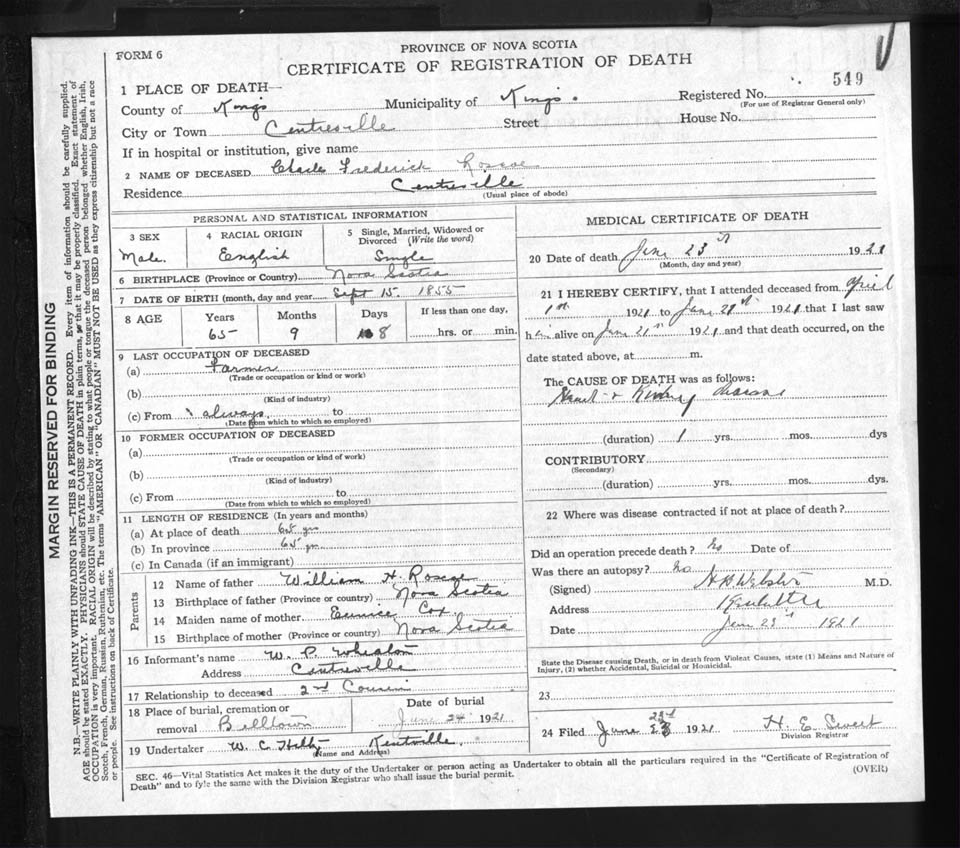 FORM 6
PROVINCE OF NOVA SCOTIA
CERTIFICATE OF REGISTRATION OF DEATH
549
1 PLACE OF DEATH—
County of Kings Municipality of Kings. Registered No.
(For use of Registrar General only)
City or Town Centreville Street House No.
If in hospital or institution, give name
2 NAME OF DECEASED Charles Frederick Roscoe
Residence Centreville
(Usual place of abode)
PERSONAL AND STATISTICAL INFORMATION
3 SEX 4 RACIAL ORIGIN 5 Single, Married, Widowed or Divorced (Write the word)
Male. English Single
6 BIRTHPLACE (Province or Country) Nova Scotia
7 DATE OF BIRTH (month, day and year) Sept 15. 1855
8 AGE Years Months Days If less than one day,
65 9 8 hrs. or min.
9 LAST OCCUPATION OF DECEASED
(a) Farmer
(Trade or occupation or kind or work)
(b)
(Kind of industry)
(c) From always. to
(Date from which to which so employed)
10 FORMER OCCUPATION OF DECEASED
(a)
(Trade or occupation or kind of work)
(b)
(Kind of industry)
(c) From to
(Date from which to which so employed)
11 LENGTH OF RESIDENCE (In years and months)
(a) At place of death 65 yrs
(b) In province 65 yrs
(c) In Canada (if an immigrant)
Parents
12 Name of father William H. Roscoe
13 Birthplace of father (Province or country) Nova Scotia
14 Maiden name of mother Eunice Cox
15 Birthplace of mother (Province or country) Nova Scotia
16 Informant's name W. P. Wheaton
Address Centreville
17 Relationship to deceased 2nd Cousin
18 Place of burial, cremation or removal Belltown
Date of burial
June 24 1921
19 Undertaker W. C. Kentville.
(Name and Address)
MEDICAL CERTIFICATE OF DEATH
20 Date of death June 23 1921
(Month, day and year)
21 I HEREBY CERTIFY, that I attended deceased from April
1st 1921 to June 1921 that I last saw
him alive on June 21st 1921 and that death occurred, on the
date stated above, at m.
The CAUSE OF DEATH was as follows:
Heart & Kidney disease
(duration) 1 yrs. mos. dys
CONTRIBUTORY
(Secondary)
(duration) yrs. mos. dys.
22 Where was disease contracted if not at place of death?
Did an operation precede death? No Date of
Was there an autopsy? No
(Signed) H B Webster M.D.
Address Kentville
Date June 23 1921
State the Disease causing Death, or in death from Violent Causes, state (1) Means and Nature of
Injury, (2) whether Accidental, Suicidal or Homicidal.
23
24 Filed June 23rd 1921 H. E.
Division Registrar
SEC. 46—Vital Statistics Act makes it the duty of the Undertaker or person acting as Undertaker to obtain all the particulars required in the "Certificate of Registration of
Death" and to fyle the same with the Division Registrar who shall issue the burial permit.
(OVER)
MARGIN RESERVED FOR BINDING
N.B.—WRITE PLAINLY WITH UNFADING INK—THIS IS A PERMANENT RECORD. Every item of information should be carefully supplied.
AGE should be stated EXACTLY. PHYSICIANS should STATE CAUSE OF DEATH in plain terms, so that it may be properly classified. Exact statement of
OCCUPATION is very important. RACIAL ORIGIN will be described by stating to what people or tongue the deceased person belonged whether English, Irish,
Scotch, French, German, Russian, Ruthenian, etc. The terms "AMERICAN" OR "CANADIAN" MUST NOT BE USED as they express citizenship but not a race
or people. See instructions on back of Certificate.